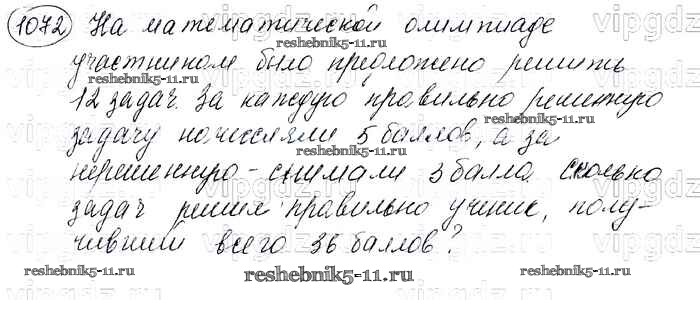 1072 На математической олимпиаде
участникам было предложено решить
12 задач. За каждую правильно решенную
задачу начисляли 5 баллов, а за
нерешенную - снимали 3 балла. Сколько
задач решил правильно ученик, полу-
чивший всего 36 баллов?
reshebnik5-11.ru
reshebnik5-11.ru
reshebnik5-11.ru
reshebnik5-11.ru
reshebnik5-11.ru
reshebnik5-11.ru
reshebnik5-11.ru
vipgdz
vipgdz
vipgdz